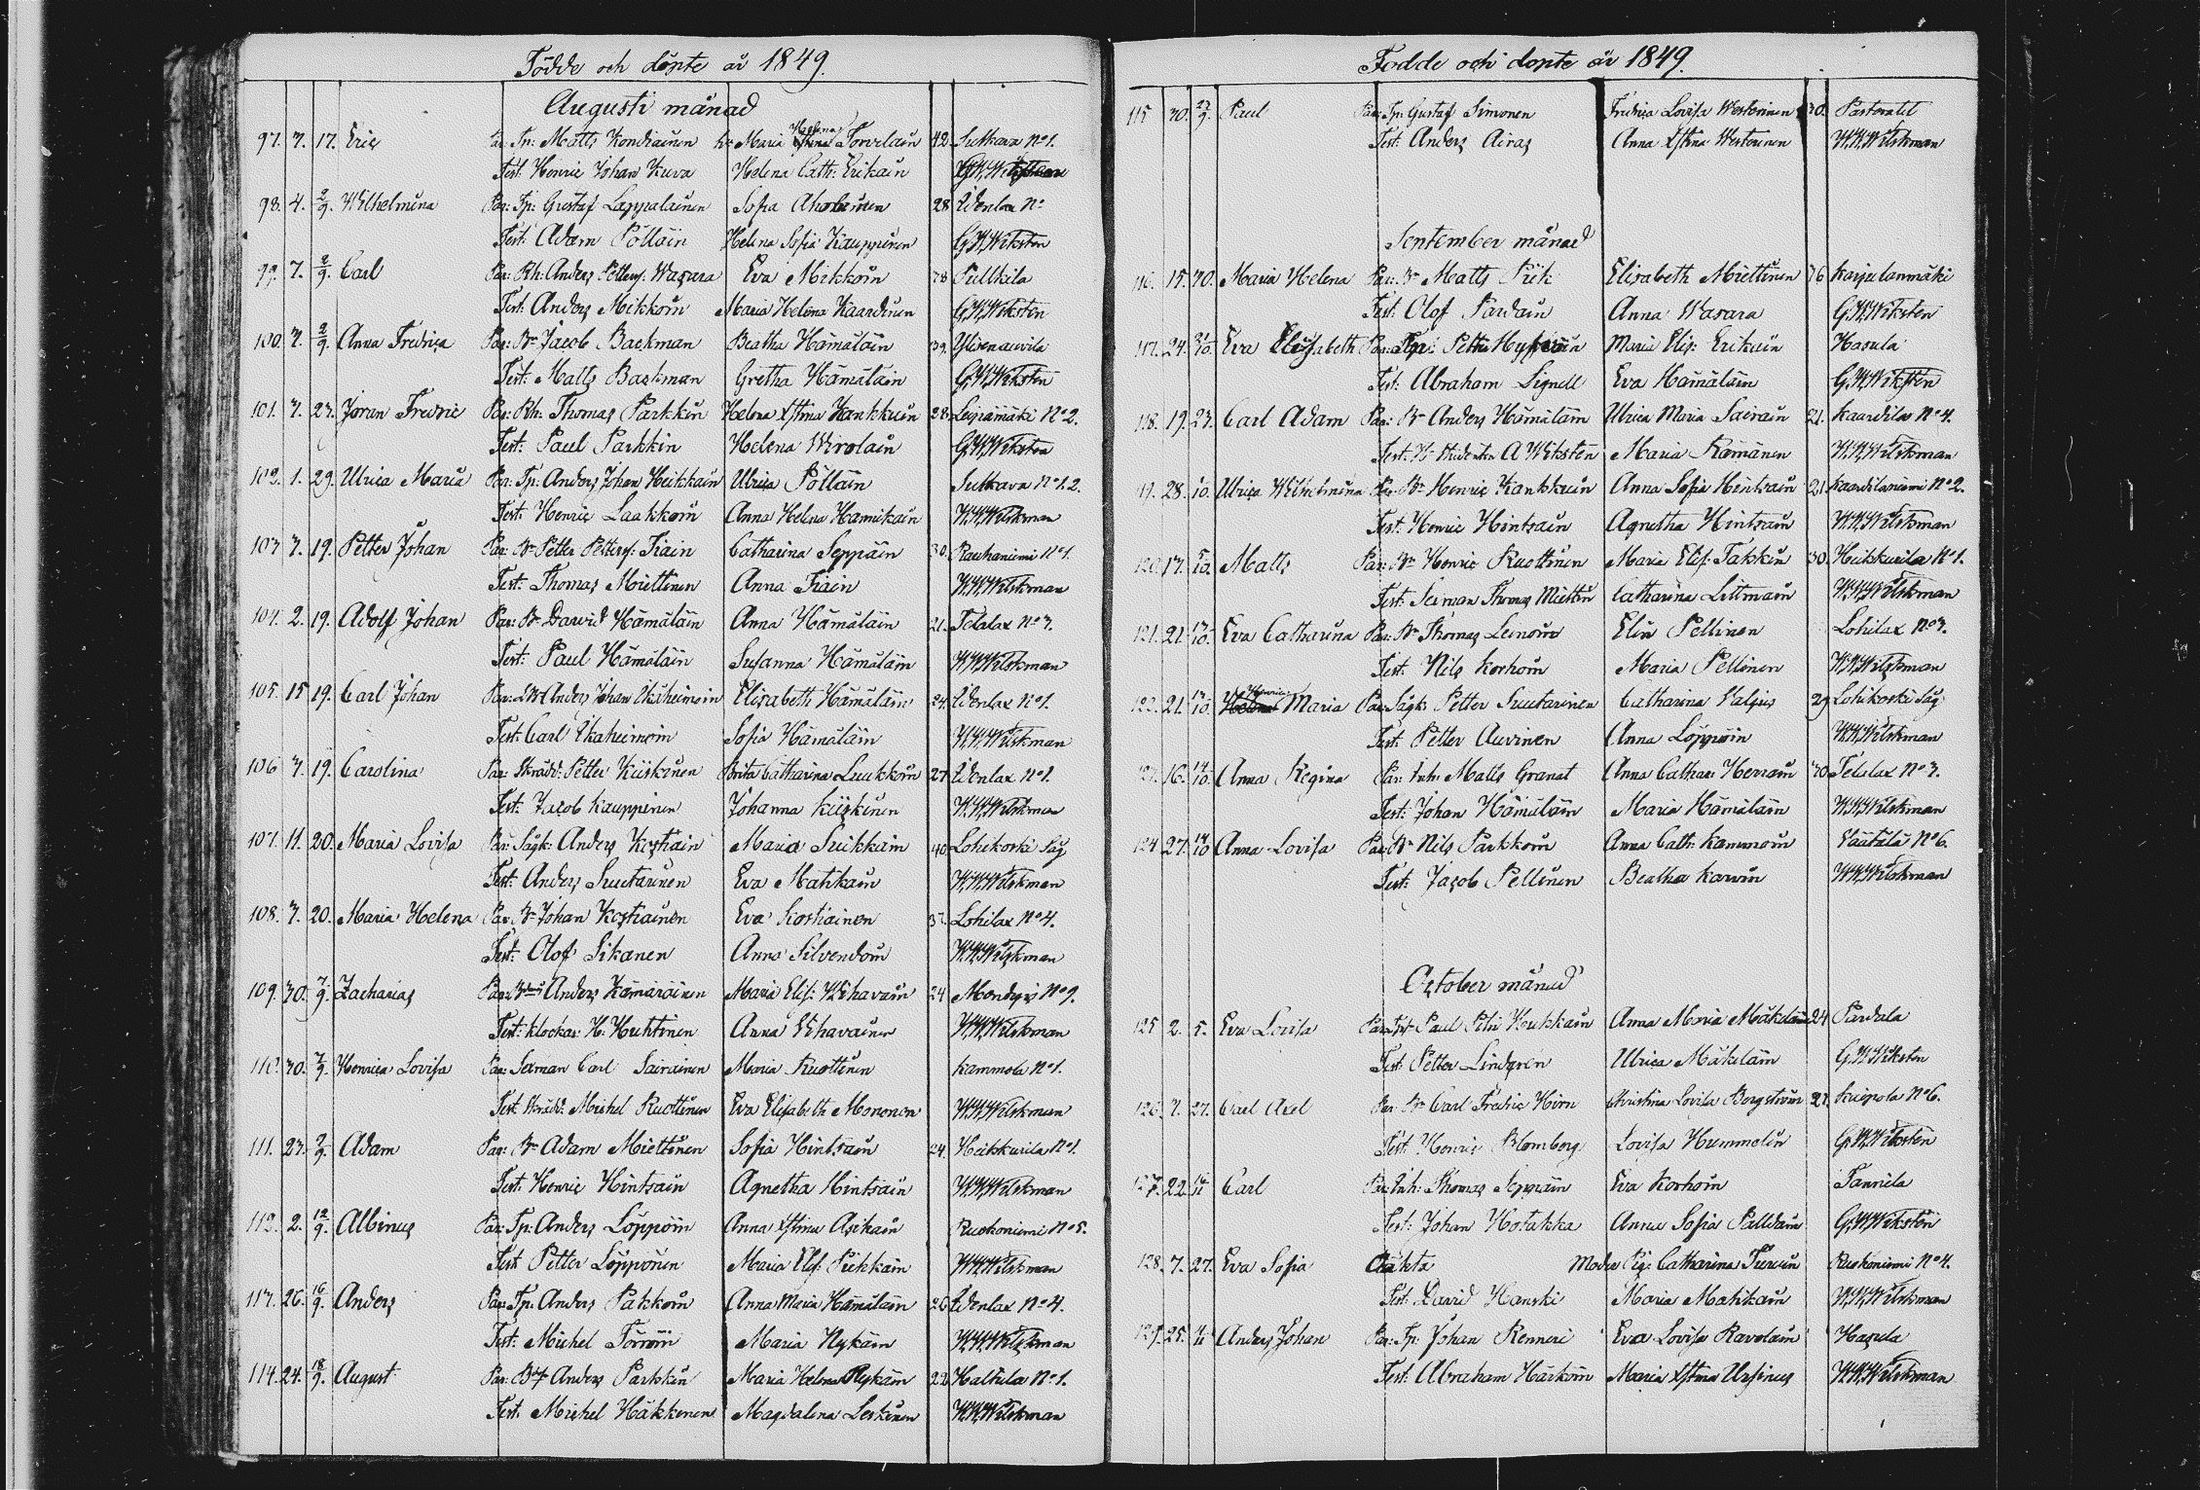 Födde och döpte år 1849.
Augusti månad
97. 7. 17. Eric Par: Tp: Matts Kondiainen h. Maria Helena Torvelain 42. Sutkava No 1.
Test: Henric Johan Kuva Helena Cath: Erikain
98. 4. 2/9. Wilhelmina Par: Tp: Gustaf Lappalainen Sofia Aholainen 28 Idenlax No
Test: Adam Pöllain Helena Sofia Kauppinen G.W.Wiksten
99. 7. 2/9. Carl Par: Rh: Anders Pettersf: Wasara Eva Mikkoin 78 Pullkila
Test: Anders Mikkoin Maria Helena Kaardinen G.W.Wiksten
100. 7. 2/9. Anna Fredrica Par: Br Jacob Backman Beatha Hämäläin 39. Ylisenauvila
Test: Matts Backman Gretha Hämäläin G.W.Wiksten
101. 7. 27. Joran Fredric Par: Rh: Thomas Parkkin Helena Xstina Kankkuin 28. Leppämäki No 2.
Test: Paul Parkkin Helena Wirolain G.W.Wiksten
102. 1. 29. Ulrica Maria Par: Tp: Anders Johan Heikkain Ulrica Pöllain Sutkava No 1.2.
Test: Henric Laakkoin Anna Helena Hannikain W.W.Wilskman
103 7. 19. Petter Johan Par: Br Petter Pettersf: Tiain Catharina Seppäin 30. Rauhaniemi No 1.
Test: Thomas Miettinen Anna Tiain W.W.Wilskman
104. 2. 19. Adolf Johan Par: Br David Hämäläin Anna Hämäläin 21. Telalax No 3.
Test: Paul Hämäläin Susanna Hämäläin W.W.Wilskman
105. 15 19. Carl Johan Par: Anders Johan Ikäheimoin Elisabeth Hämäläin 24. Idenlax No 1.
Test: Carl Ikäheimoin Sofia Hämäläin W.W.Wilskman
106 7. 19. Carolina Par Skrädd: Petter Kiiskinen Brita Catharina Luukkoin 27. Idenlax No 1.
Test: Jacob Kauppinen Johanna Kiiskinen W.W.Wilskman
107. 11. 20. Maria Lovisa Par: Sågk: Anders Kostiain Maria Suikkain 40 Lohikoski Såg
Test: Anders Suutarinen Eva Matikain W.W.Wilskman
108. 7. 20. Maria Helena Par: Br Johan Kostiainen Eva Kostiainen 37. Lohilax No 4.
Test: Olof Sikanen Anna Silvendoin W.W.Wilskman
109. 30. 7/9. Zacharias Par: Anders Kämäräinen Maria Elis: Wihavain 24 Mondyri No 9.
Test: Klockar H: Huhtinen Anna Wihavainen W.W.Wilskman
110. 30. 7/9. Henrica Lovisa Par: Seman Carl Sairainen Maria Ruottinen Kammola No 1.
Test: Skrädd: Michel Ruottinen Eva Elisabeth Mononen W.W.Wilskman
111. 23. 9/9. Adam Par: Br Adam Miettinen Sofia Hintsain 24. Heikkurila No 1.
Test: Henric Hintsain Agnetha Hintsain W.W.Wilskman
112. 2. 12/9. Albinus Par: Tp: Anders Löppöin Anna Xstina Asikain Ruokoniemi No 5.
Test: Petter Löppönen Maria Elis: Piikkain W.W.Wilskman
113. 26. 16/9. Anders Par: Tp: Anders Pakkoin Anna Maria Hämäläin 26 Idenlax No 4.
Test: Michel Törröin Maria Nykäin W.W.Wilskman
114. 24. 18/9. August Par: Anders Parkkin Maria Helena Nykäin 22 Haltula No 1.
Test: Michel Häkkinen Magdalena Leskinen W.W.Wilskman
Födde och döpte år 1849.
115 30. 23/9. Paul Par: Tp: Gustaf Simonen Fredrica Lovisa Westerinen 30. Pastoratet
Test: Anders Airas Anna Xstina Westerinen W.W.Wilskman
September månad
116. 15. 30. Maria Helena Par: Br Matts Piik Elisabeth Miettinen 36 Karjulanmäki
Test: Olof Pardain Anna Wasara G.W.Wiksten
117. 24. Eva Elisabeth Par: Tp: Petter Maria Elis: Erikain Hasula
Test: Abraham Lignell Eva Hämäläin G.W.Wiksten
118. 19. 23. Carl Adam Par: Br Anders Hämäläin Ulrica Maria Sairain 21. Kaardila No 4.
Test: Studenten A Wikstén Maria Rämänen W.W.Wilskman
28. Ulrica Wilhelmina Par: Br Henric Kankkuin Anna Sofia Hintsain 21 Kaardilaniemi No 2.
Test: Henric Hintsain Agnetha Hintsain W.W.Wilskman
120. 17. Matts Par: Br Henric Ruottinen Maria Elis: Takkin 30. Heikkurila No 1.
Test: Seman Thomas Miettin Catharina Littmain W.W.Wilskman
121. 21. Eva Catharina Par: Br Thomas Leinoin Elin Pellinen Lohilax No 3.
Test: Nils Korhoin Maria Pellinen W.W.Wilskman
122. 21. Henrica Maria Par: Sågk: Petter Suutarinen Catharina Valgus 29 Lohikoski Såg
Test: Petter Auvinen Anna Löppöin W.W.Wilskman
16. Anna Regina Par: Inh: Matts Granat Anna Cathar: Herrain 30 Telalax No 3.
Test: Johan Hämäläin Maria Hämäläin W.W.Wilskman
124 27. Anna Lovisa Par: Br Nils Parkkoin Anna Cath: Kammoin Väätälä No 6.
Test: Jacob Pellinen Beatha Karvin W.W.Wilskman
October månad
125 2. 5. Eva Lovisa Par: Paul Petri Houkkain Anna Maria Mäkeläin 24 Pardala
Test: Petter Lindgren Ulrica Mäkeläin G.W.Wiksten
126. 7. 27. Carl Axel Par: Br Carl Fredric Hirn Christina Lovisa Bergström 27. Kuispola No 6.
Test: Henric Blomberg Lovisa Hummelin G.W.Wiksten
127. 22. Carl Par: Inh: Thomas Seppäin Eva Korhoin Tannila
Test: Johan Hotakka Anna Sofia Palldain G.W.Wiksten
128. 7. 27. Eva Sofia Oäkta Moder Pig: Catharina Ruokoniemi No 4.
Test: David Hanski Maria Matikain W.W.Wilskman
129. 25. Anders Johan Par: Tp: Johan Renneri Eva Lovisa Ravolain Hasula
Test: Abraham Härköin Maria Xstina Ursinus W.W.Wilskman